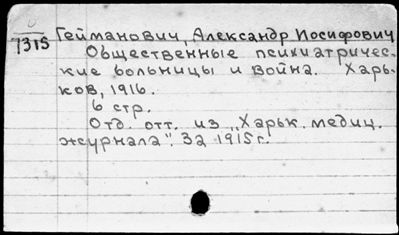 1315
Гейманович, Александр Иосифович
Общественные психиатричес-
кие больницы и война. Харь-
ков, 1916.
6 стр.
Отд. отт. из „Харьк. медиц.
журнала". за 1915 г.